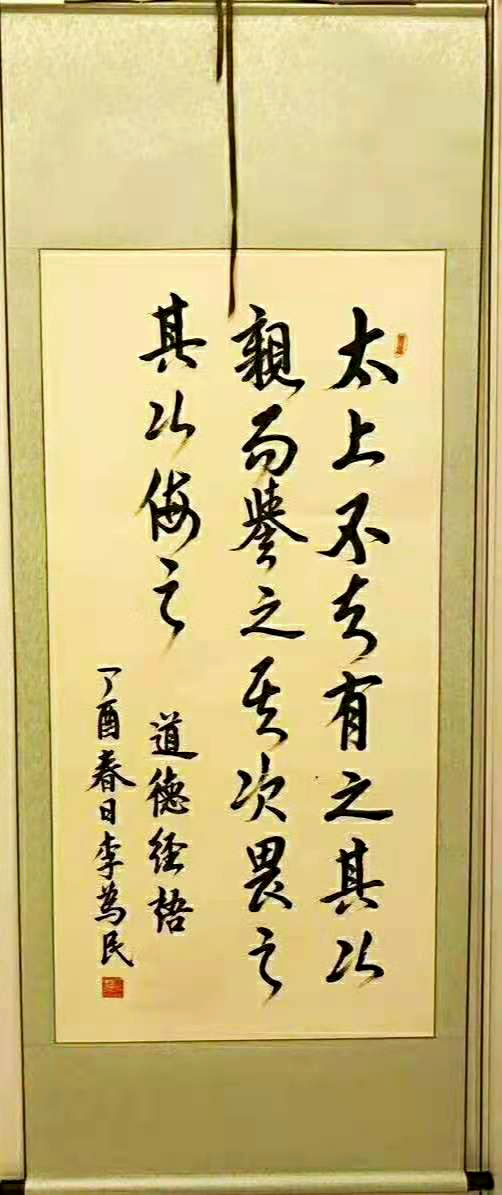 太上不知有之其次
親而譽之其次畏之
其次侮之
道德经悟
丁酉春日李為民